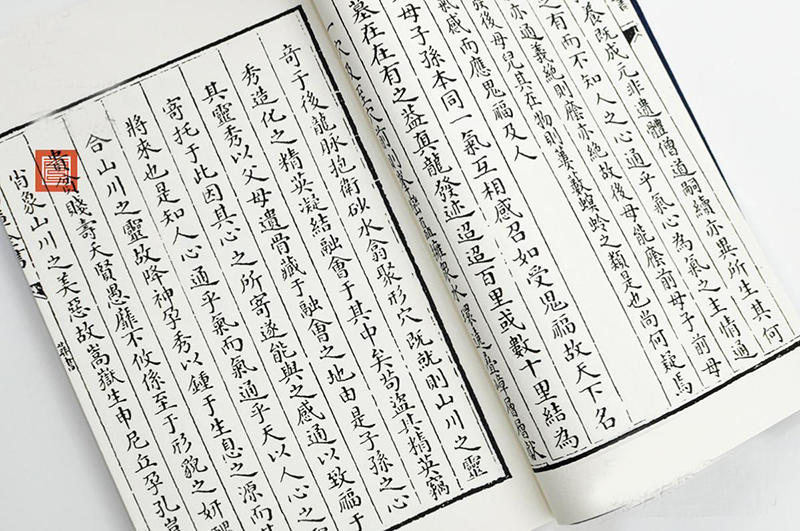 養既成元非遺體僧道嗣續亦異所生其何
之有而不知人之心通乎氣心為氣之主情通
亦通義絕則蔭亦絕故後母能蔭前母子前母
發後母兒其在物則蔞薮螟蛉之類是也尚何疑焉
氣感而應鬼福及人
父母子孫本同一氣互相感召如受鬼福故天下名
墓在在有之蓋真龍發迹迢迢百里或數十里結為
一穴及至穴前則峯巒矗擁眾水環繞疊嶂層層獻
奇于後龍脉抱衛砂水翕聚形穴既就則山川之靈
秀造化之精英凝結融會于其中矣苟盜其精英竊
其靈秀以父母遺骨藏于融會之地由是子孫之心
寄托于此因其心之所寄遂能與之感通以致福于
將來也是知人心通乎氣而氣通乎天以人心之
合山川之靈故降神孕秀以鍾于生息之源而其
貧賤壽夭賢愚靡不攸係至于形貌之妍醜
肖象山川之美惡故嵩嶽生申尼丘孕孔豈
葬書